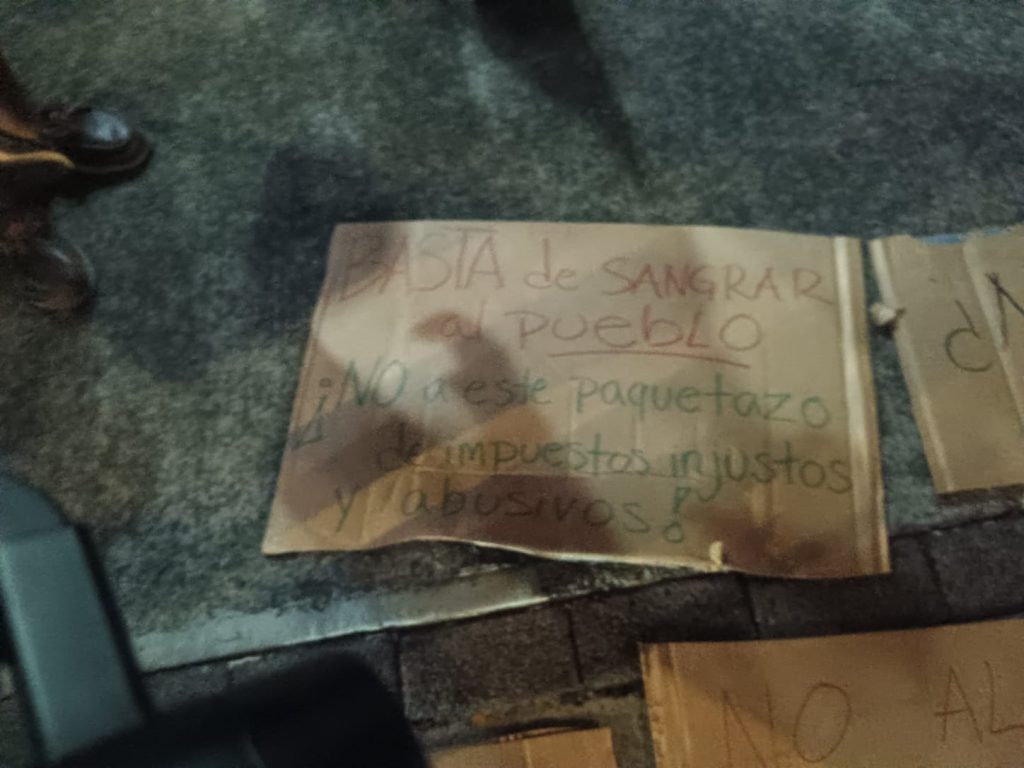 BASTA de SANGRAR
al pueblo
¡NO a este paquetazo
de impuestos injustos
y abusivos!
NO AL